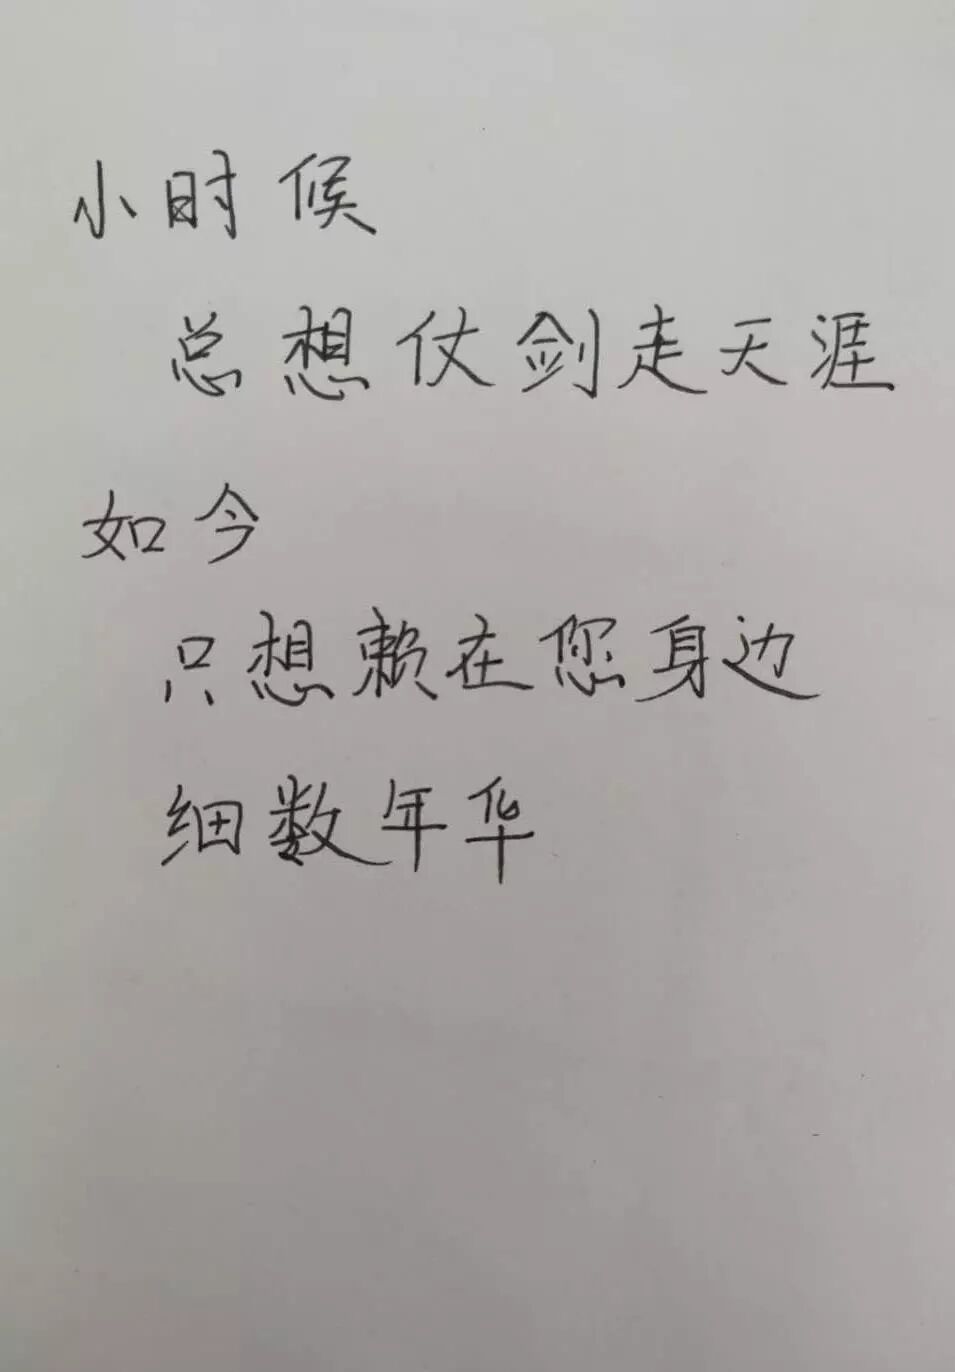 小时候
总想仗剑走天涯
如今
只想赖在您身边
细数年华